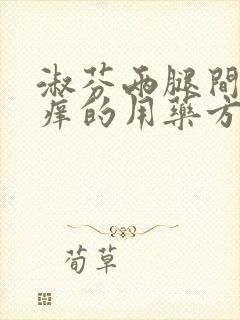 淑芬两腿間
痒的用藥方
荀草